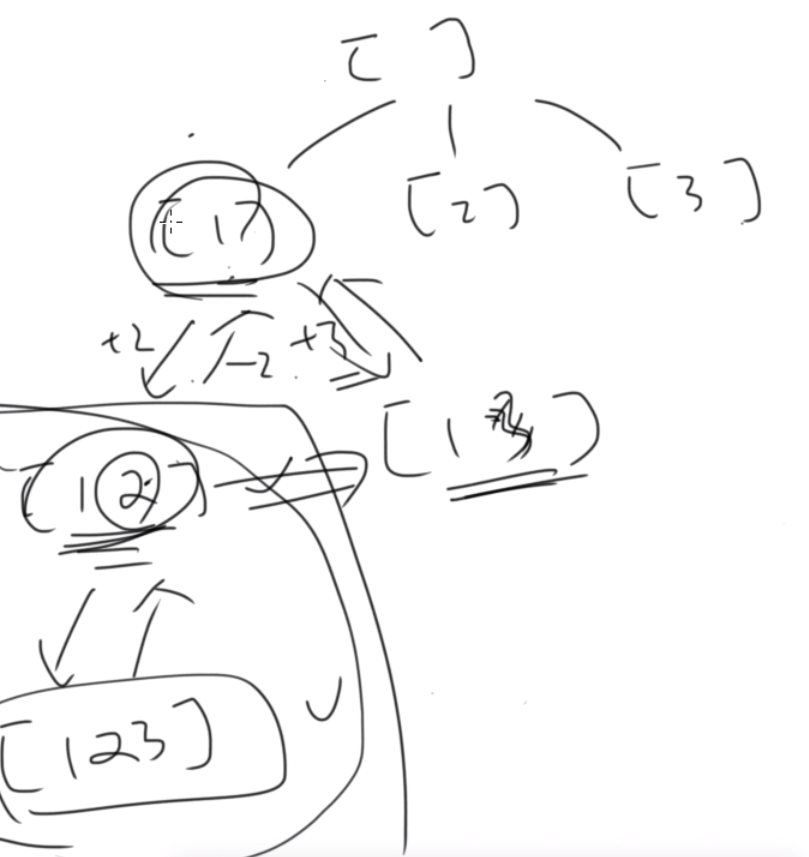 [ ]
[1] [2] [3]
+2 -2 +3
[12] [1 ]
[123]